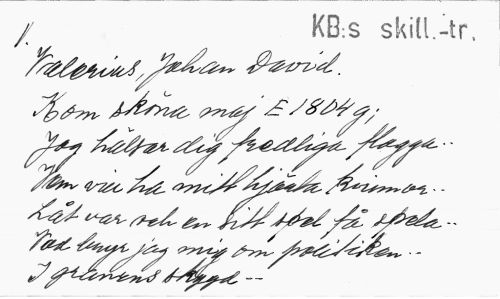 V.
KB:s skill.-tr.
Valerius, Johan David.
Kom sköna maj E 1804 g;
Jag hälsar dig fredliga flagga--
Vem vill ha mitt hjärta kvinnor--
Låt var och en sitt spel få spela--
Vad bryr jag mig om politiken--
I granens skygd--